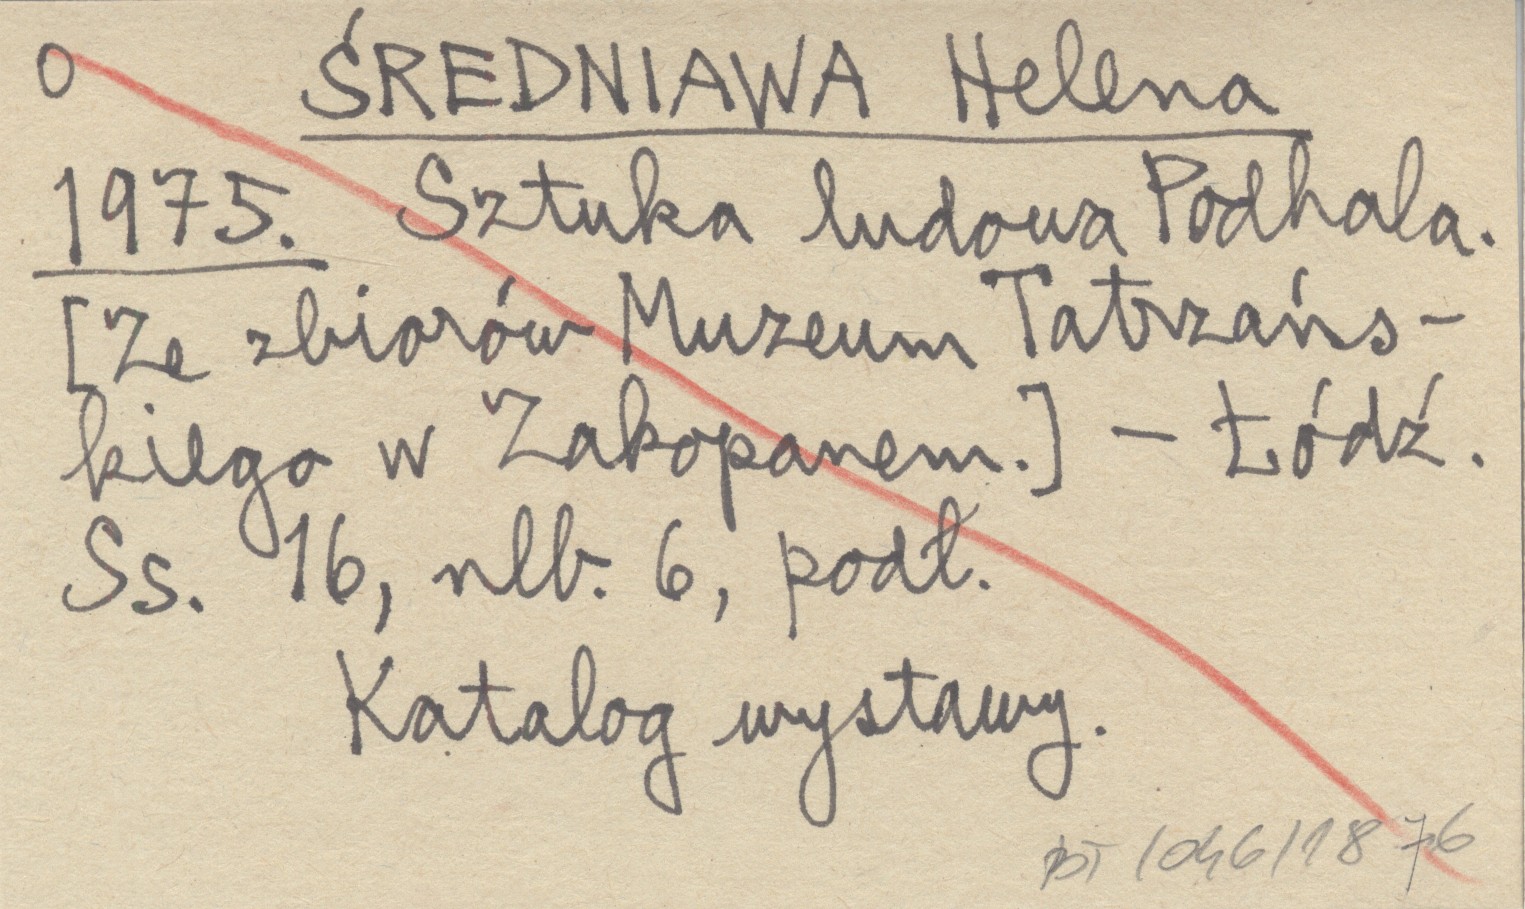 O ŚREDNIAWA Helena
1975. Sztuka ludowa Podhala.
[Ze zbiorów Muzeum Tatrzańs-
kiego w Zakopanem.] - Łódź.
Ss. 16, nlb. 6, podł.
Katalog wystawy.
76